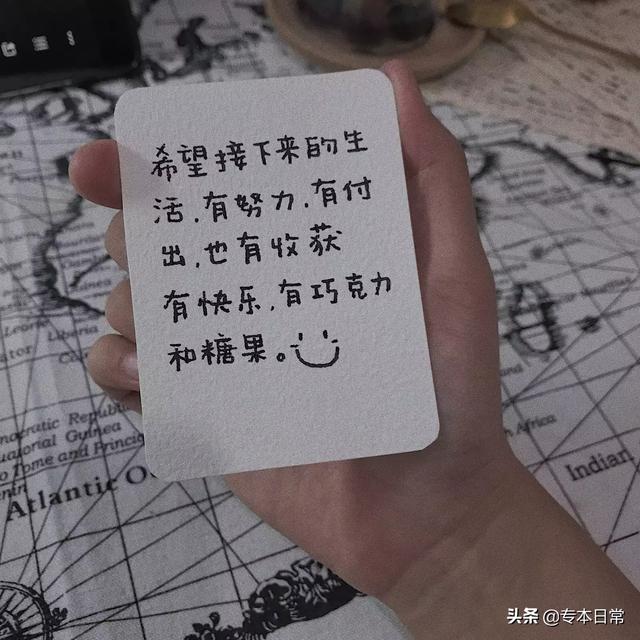 希望接下来的生
活,有努力,有付
出,也有收获
有快乐,有巧克力
和糖果。
Learn
ocratic Republi
uatorial Guinea
o Tome and Princip
Atlantic O
Africa
Indian
头条 @专本日常